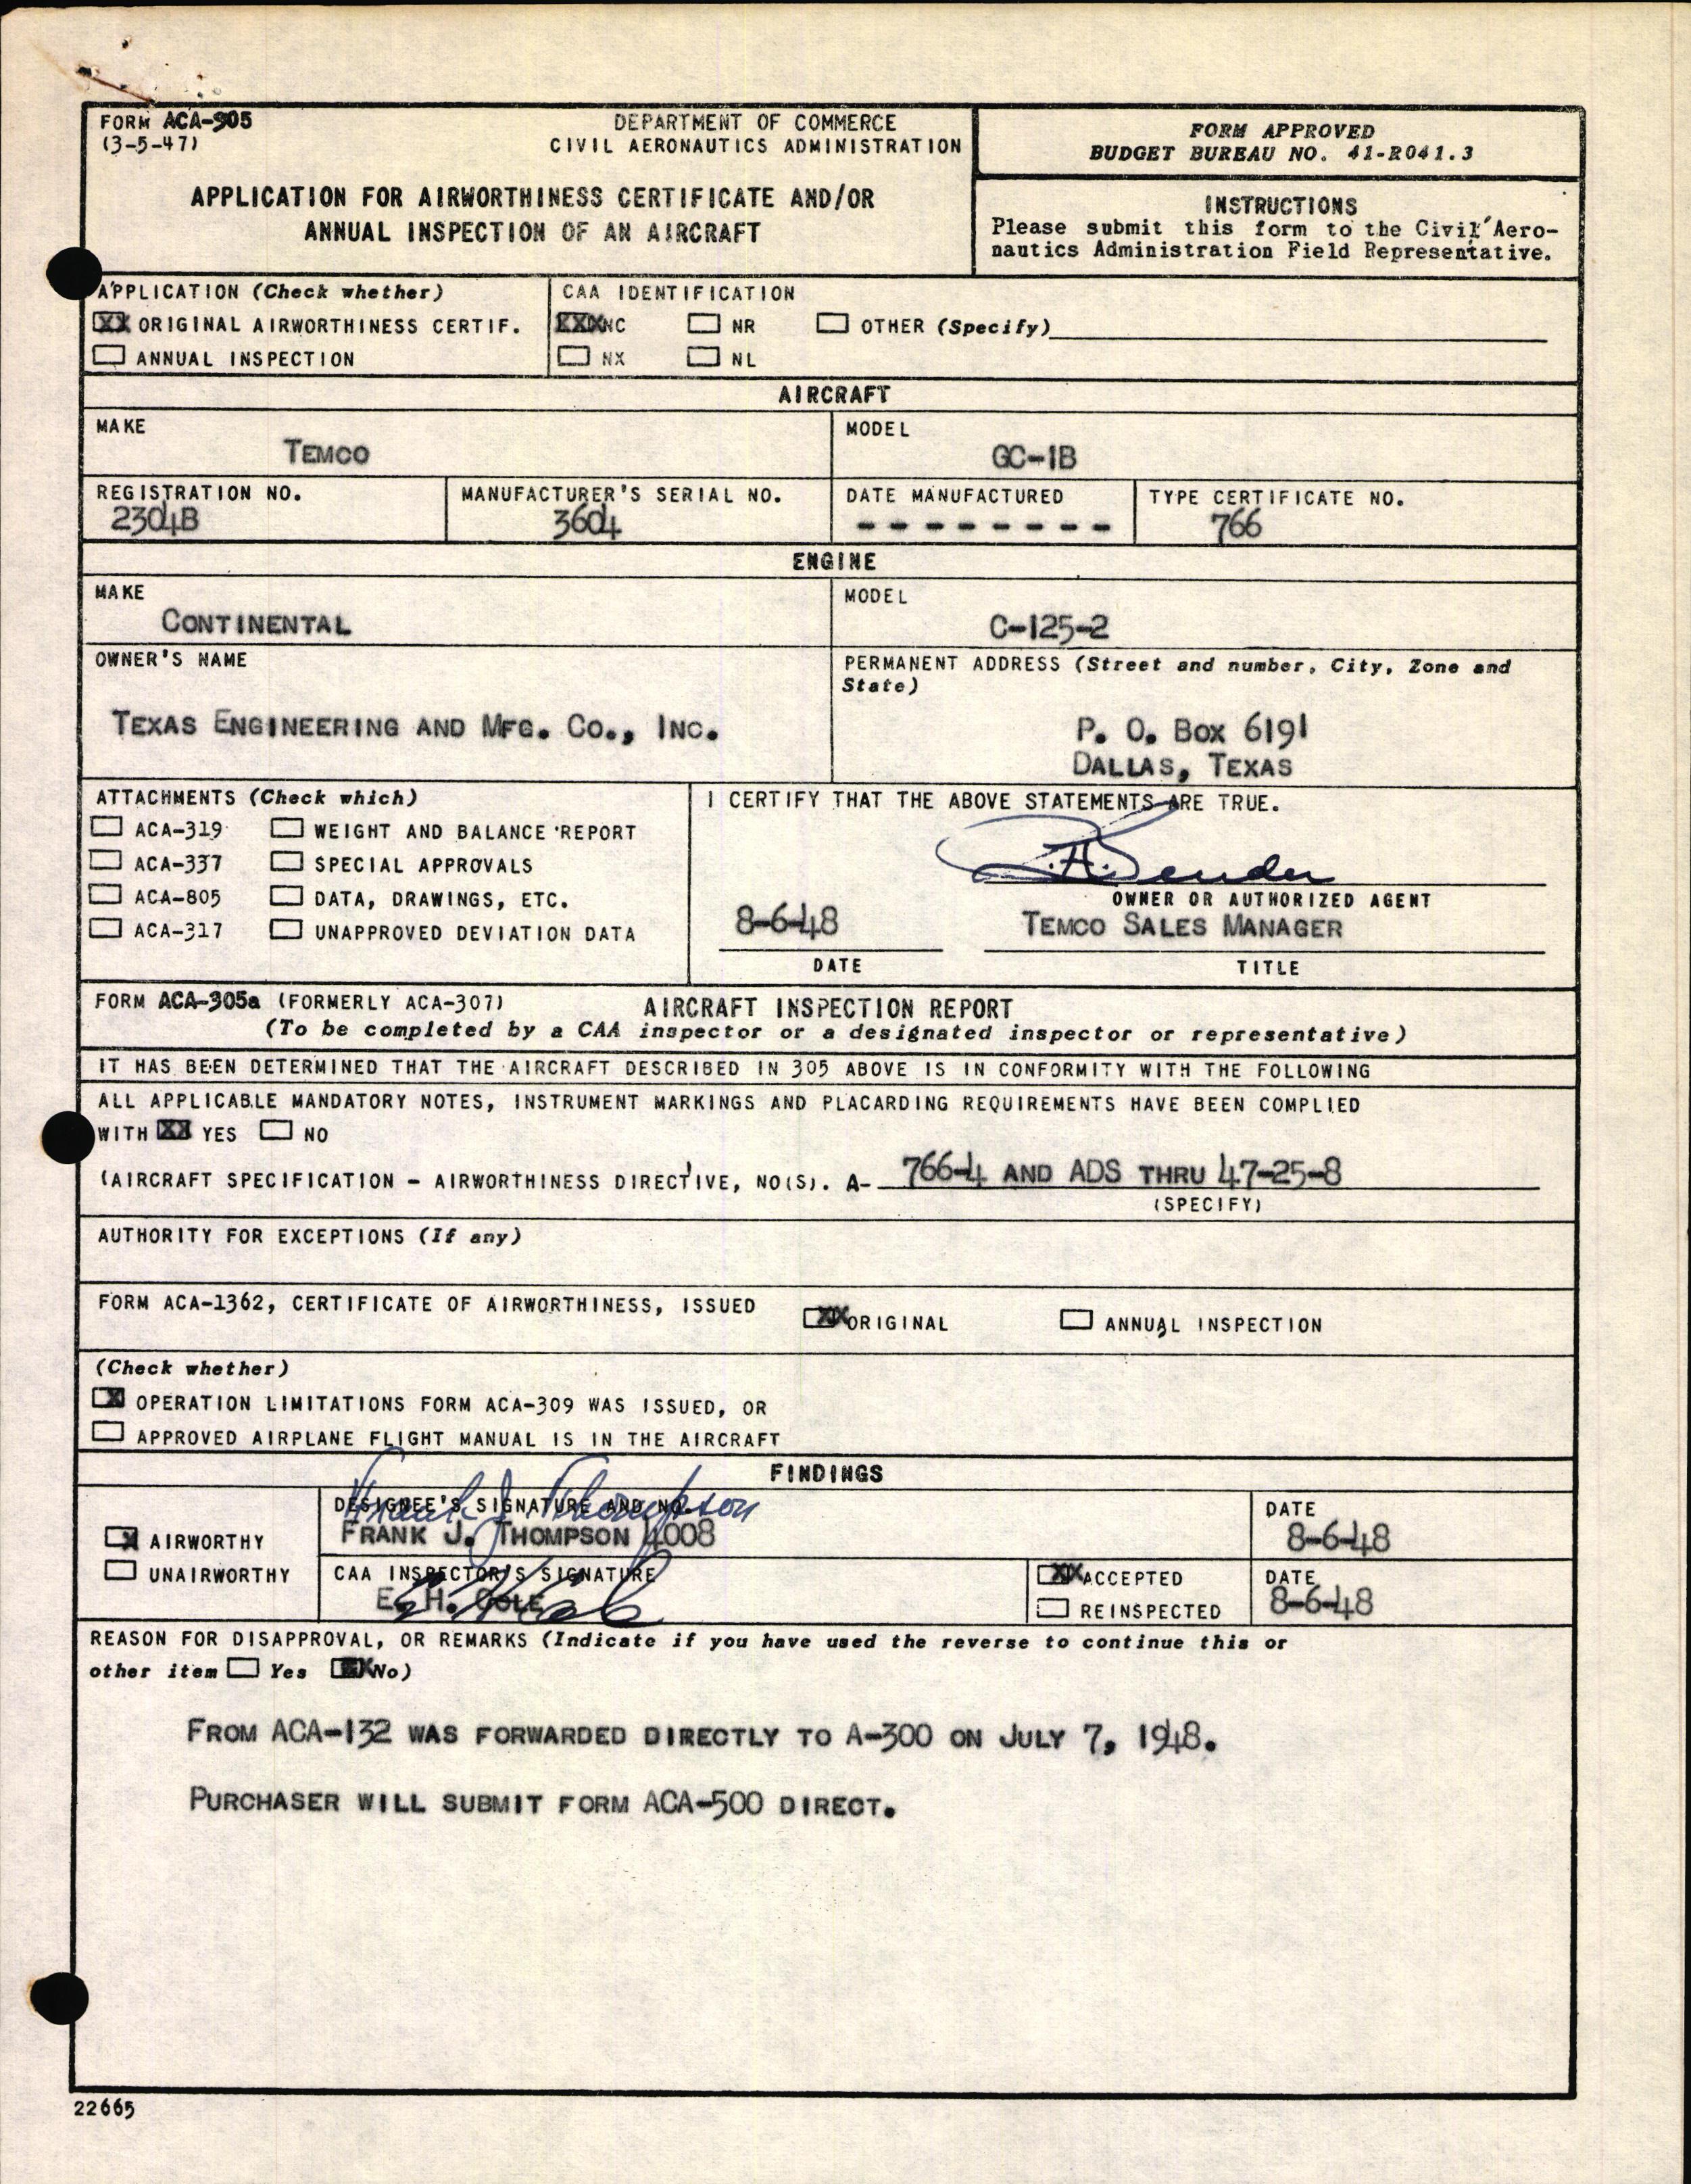 FORM ACA-305
(3-5-47)
DEPARTMENT OF COMMERCE
CIVIL AERONAUTICS ADMINISTRATION
APPLICATION FOR AIRWORTHINESS CERTIFICATE AND/OR
ANNUAL INSPECTION OF AN AIRCRAFT
FORM APPROVED
BUDGET BUREAU NO. 41-R041.3
INSTRUCTIONS
Please submit this form to the Civil Aero-
nautics Administration Field Representative.
APPLICATION (Check whether)
XX ORIGINAL AIRWORTHINESS CERTIF.
ANNUAL INSPECTION
CAA IDENTIFICATION
XXX NC NR OTHER (Specify)
NX NL
AIRCRAFT
MAKE
TEMCO
MODEL
GC-1B
REGISTRATION NO.
2304B
MANUFACTURER'S SERIAL NO.
3604
DATE MANUFACTURED
- - - - - - - -
TYPE CERTIFICATE NO.
766
ENGINE
MAKE
CONTINENTAL
MODEL
C-125-2
OWNER'S NAME
TEXAS ENGINEERING AND MFG. CO., INC.
PERMANENT ADDRESS (Street and number, City, Zone and
State)
P. O. BOX 6191
DALLAS, TEXAS
ATTACHMENTS (Check which)
ACA-319 WEIGHT AND BALANCE REPORT
ACA-337 SPECIAL APPROVALS
ACA-805 DATA, DRAWINGS, ETC.
ACA-317 UNAPPROVED DEVIATION DATA
I CERTIFY THAT THE ABOVE STATEMENTS ARE TRUE.
OWNER OR AUTHORIZED AGENT
8-6-48
TEMCO SALES MANAGER
DATE
TITLE
FORM ACA-305a (FORMERLY ACA-307)
AIRCRAFT INSPECTION REPORT
(To be completed by a CAA inspector or a designated inspector or representative)
IT HAS BEEN DETERMINED THAT THE AIRCRAFT DESCRIBED IN 305 ABOVE IS IN CONFORMITY WITH THE FOLLOWING
ALL APPLICABLE MANDATORY NOTES, INSTRUMENT MARKINGS AND PLACARDING REQUIREMENTS HAVE BEEN COMPLIED
WITH XX YES NO
(AIRCRAFT SPECIFICATION - AIRWORTHINESS DIRECTIVE, NO(S). A- 766-4 AND ADS THRU 47-25-8
(SPECIFY)
AUTHORITY FOR EXCEPTIONS (If any)
FORM ACA-1362, CERTIFICATE OF AIRWORTHINESS, ISSUED
XX ORIGINAL ANNUAL INSPECTION
(Check whether)
X OPERATION LIMITATIONS FORM ACA-309 WAS ISSUED, OR
APPROVED AIRPLANE FLIGHT MANUAL IS IN THE AIRCRAFT
FINDINGS
X AIRWORTHY
UNAIRWORTHY
DESIGNEE'S SIGNATURE AND NO.
Frank J. Thompson
FRANK J. THOMPSON 4008
DATE
8-6-48
CAA INSPECTOR'S SIGNATURE
E. H. COLE
XX ACCEPTED
REINSPECTED
DATE
8-6-48
REASON FOR DISAPPROVAL, OR REMARKS (Indicate if you have used the reverse to continue this or
other item Yes XX No)
FROM ACA-132 WAS FORWARDED DIRECTLY TO A-300 ON JULY 7, 1948.
PURCHASER WILL SUBMIT FORM ACA-500 DIRECT.
22665